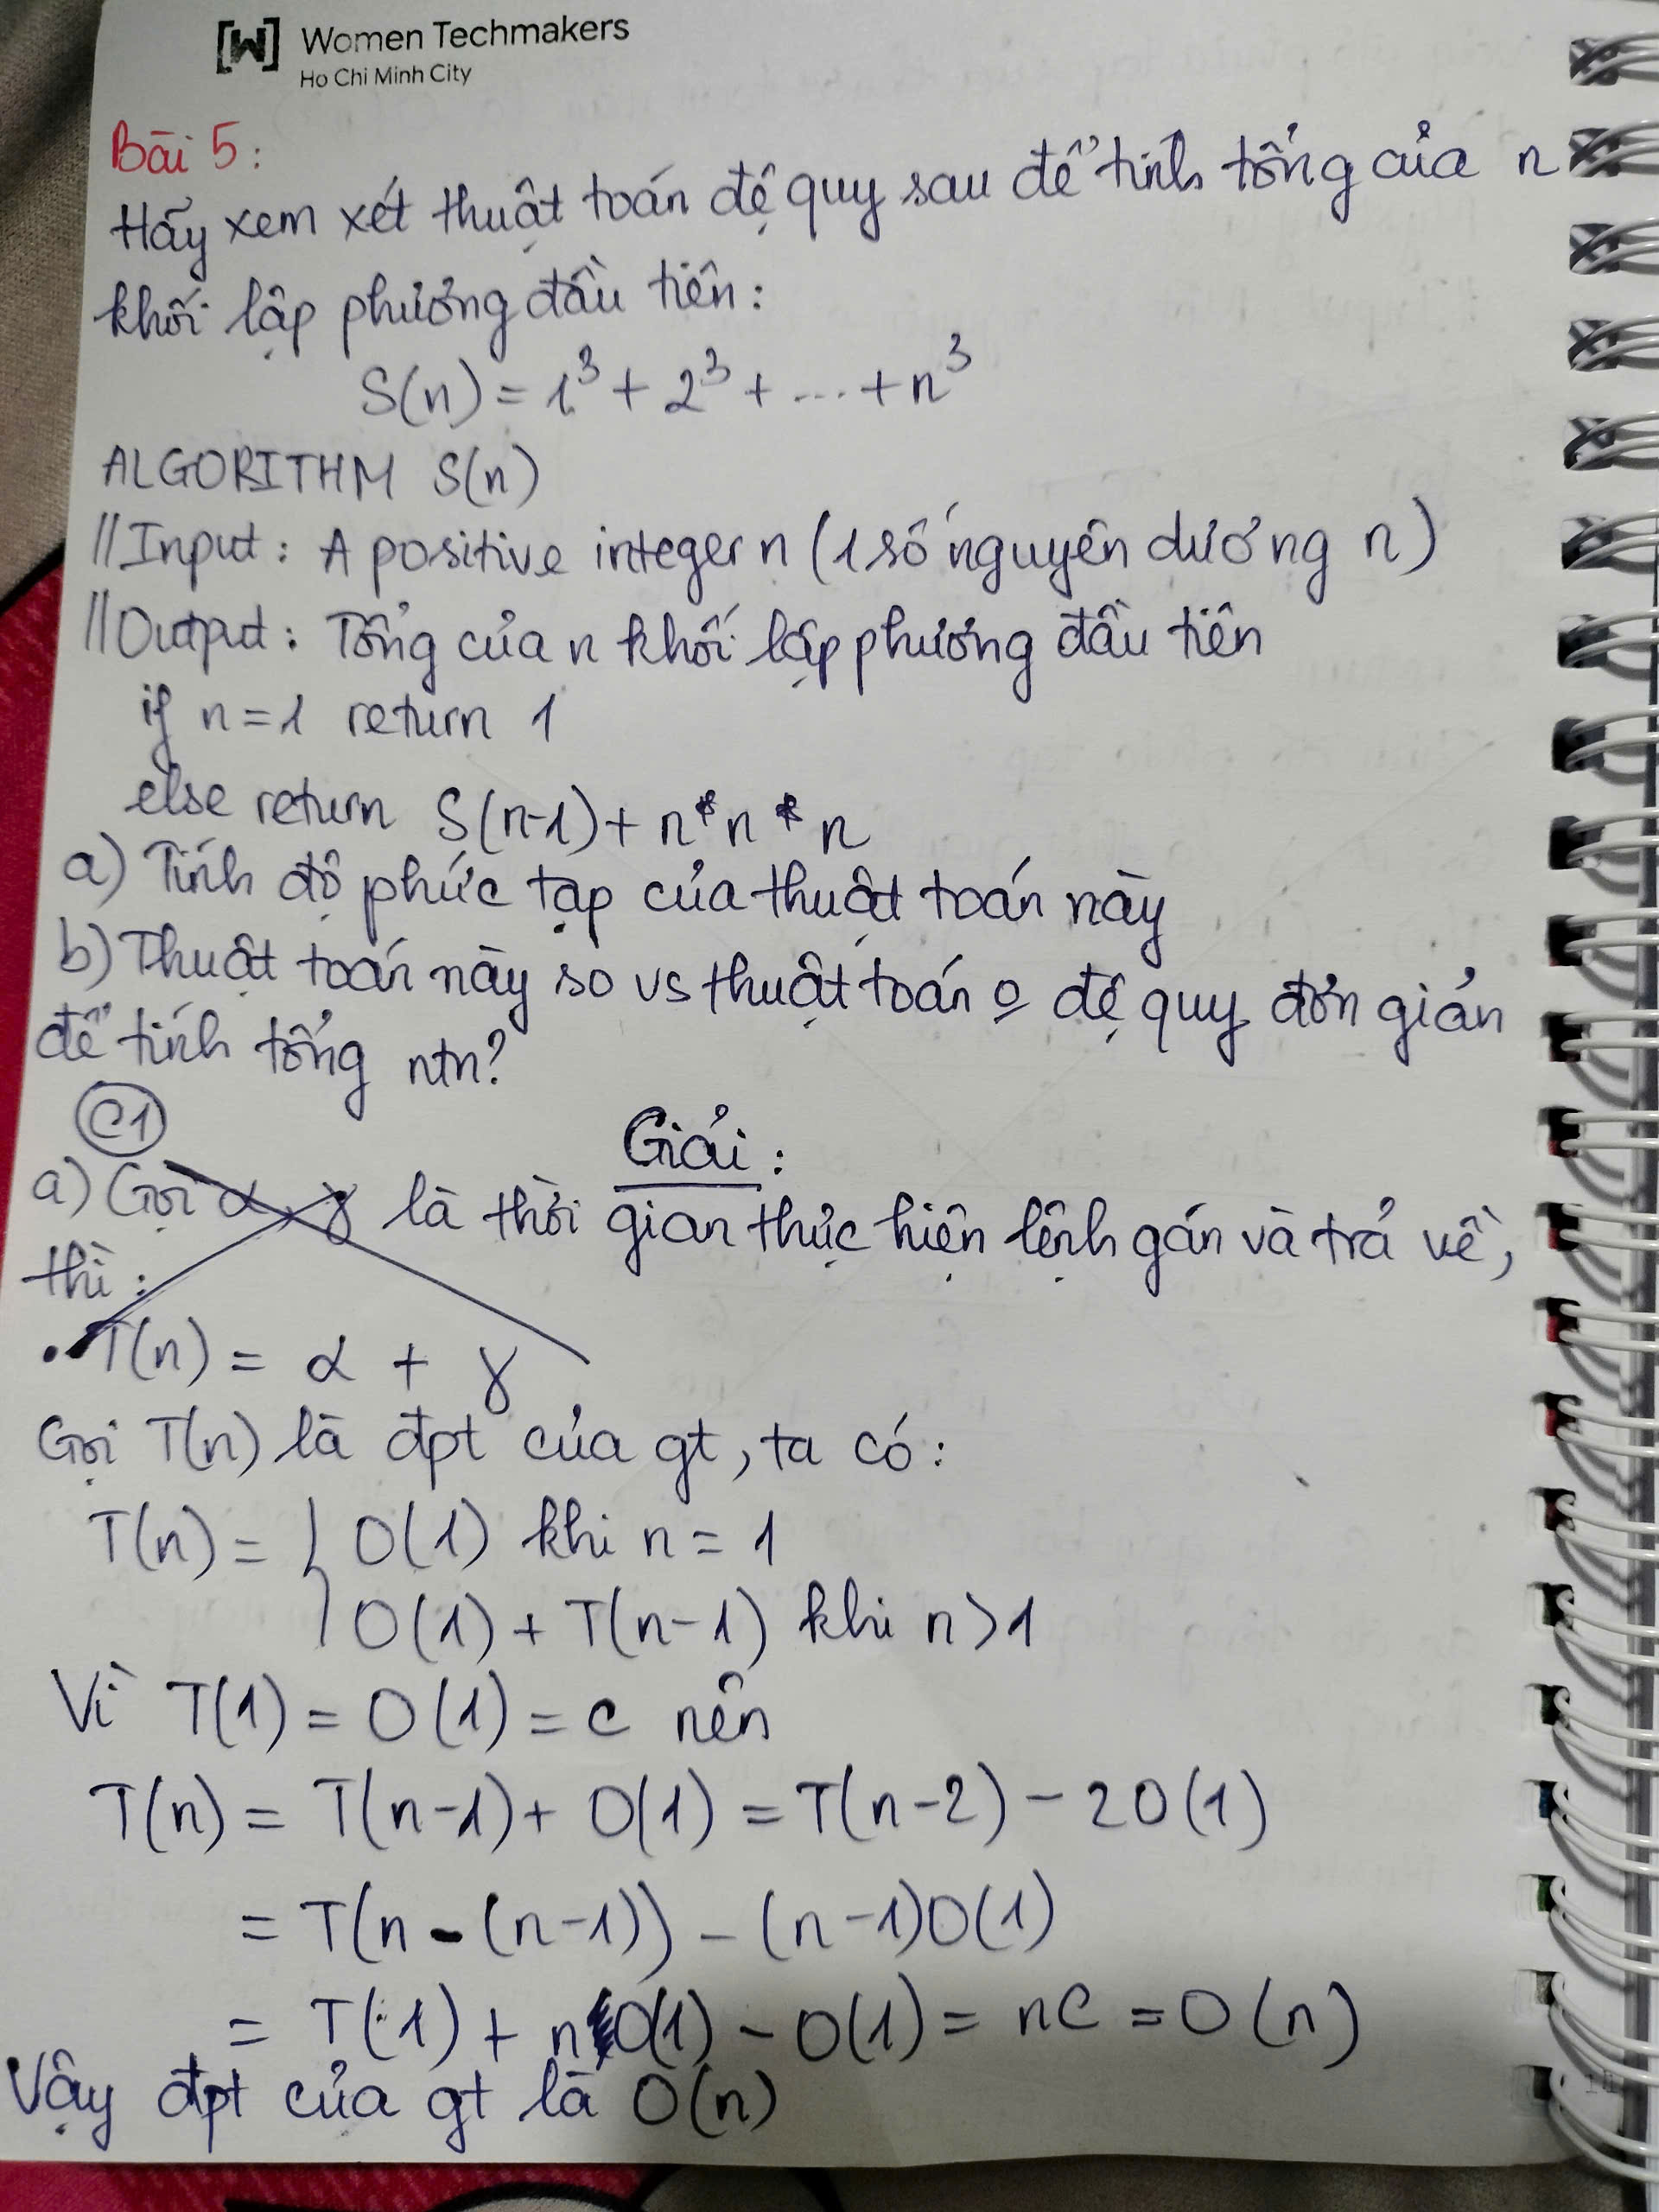 [W] Women Techmakers
Ho Chi Minh City
Bài 5:
Hãy xem xét thuật toán đệ quy sau để tính tổng của n
khối lập phương đầu tiên:
S(n) = 1³ + 2³ + ... + n³
ALGORITHM S(n)
//Input: A positive integer n (1 số nguyên dương n)
//Output: Tổng của n khối lập phương đầu tiên
if n=1 return 1
else return S(n-1) + n*n*n
a) Tính độ phức tạp của thuật toán này
b) Thuật toán này so vs thuật toán o đệ quy đơn giản
để tính tổng ntn?
C1
Giải:
a) Gọi α, γ là thời gian thực hiện lệnh gán và trả về,
thì:
• T(n) = α + γ
Gọi T(n) là đpt của gt, ta có:
T(n) = { O(1) khi n = 1
O(1) + T(n-1) khi n>1
Vì T(1) = O(1) = C nên
T(n) = T(n-1) + O(1) = T(n-2) - 2O(1)
= T(n-(n-1)) - (n-1)O(1)
= T(1) + nO(1) - O(1) = nC = O(n)
Vậy đpt của gt là O(n)